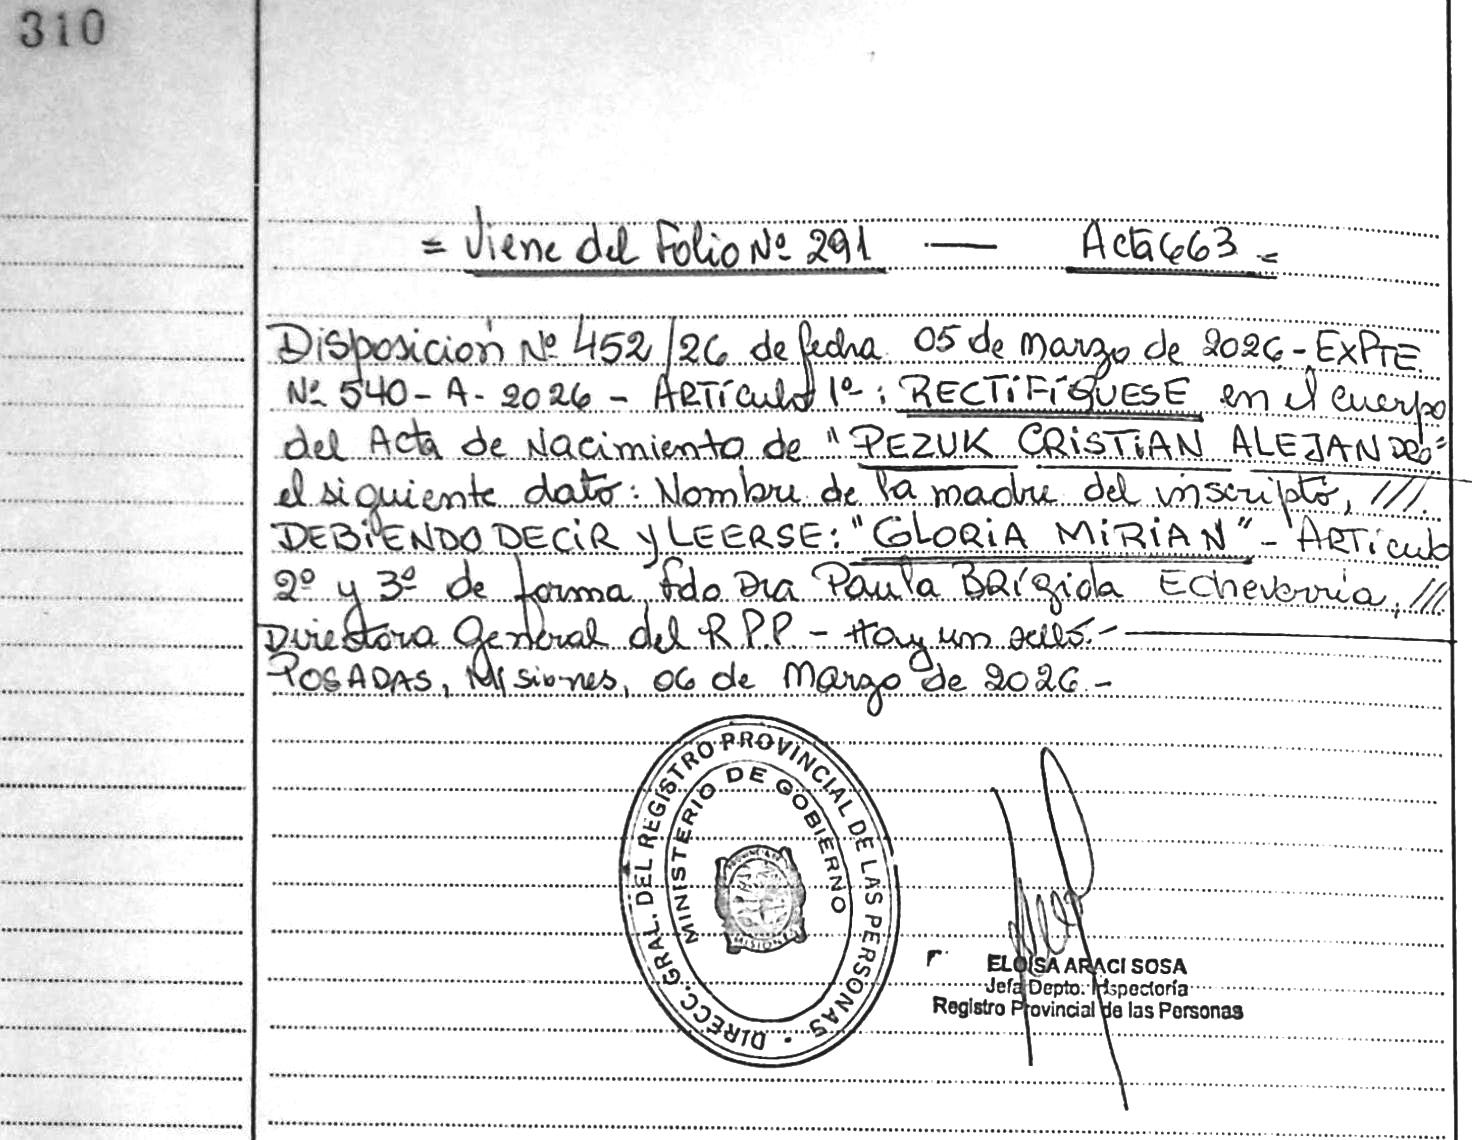 310
= Viene del Folio Nº 291 — Acta 663 =
Disposición Nº 452/26 de fecha 05 de Marzo de 2026 - EXPTE.
Nº 540 - A - 2026 - ARTículo 1º: RECTIFÍQUESE en el cuerpo
del Acta de Nacimiento de "PEZUK CRISTIAN ALEJANDRO"
el siguiente dato: Nombre de la madre del inscripto, ///.
DEBIENDO DECIR y LEERSE: "GLORIA MIRIAN" - ARTículo
2º y 3º de forma, fdo Dra Paula BRígida Echeverria, ///.
Directora General del R.P.P. - Hay un sello. -
POSADAS, Misiones, 06 de Marzo de 2026. -
DIRECC. GRAL. DEL REGISTRO PROVINCIAL DE LAS PERSONAS
MINISTERIO DE GOBIERNO
PROVINCIA DE
MISIONES
ELOISA ARACI SOSA
Jefa Depto. Inspectoría
Registro Provincial de las Personas